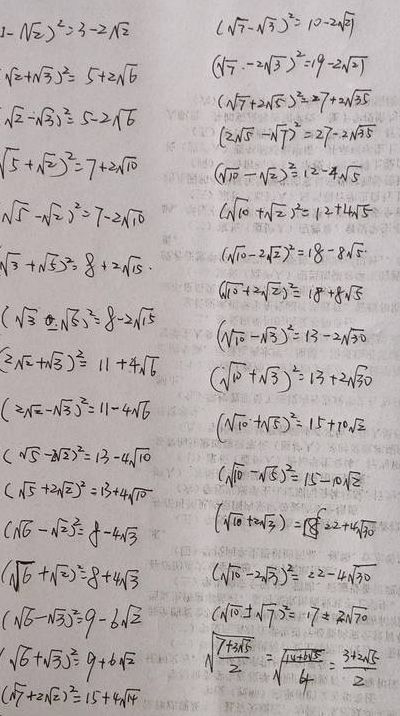 1-√2)²=3-2√2
(√2+√3)²=5+2√6
√2-√3)²=5-2√6
√5+√2)²=7+2√10
√5-√2)²=7-2√10
√3+√5)²=8+2√15.
(√3-√5)²=8-2√15
(2√2+√3)²=11+4√6
(2√2-√3)²=11-4√6
(√5-2√2)²=13-4√10
(√5+2√2)²=13+4√10
(√6-√2)²=8-4√3
(√6+√2)²=8+4√3
(√6-√3)²=9-6√2
(√6+√3)²=9+6√2
(√7+2√2)²=15+4√14
(√7-√3)²=10-2√21
(√7-2√3)²=19-2√21
(√7+2√5)²=27+2√35
(2√5-√7)²=27-2√35
(√10-√2)²=12-4√5
(√10+√2)²=12+4√5
(√10-2√2)²=18-8√5.
(√10+2√2)²=18+8√5
(√10-√3)²=13-2√30
(√10+√3)²=13+2√30
(√10+√5)²=15+10√2
(√10-√5)²=15-10√2
(√10+2√3)=22+4√30
(√10-2√3)²=22-4√30
(√10±√7)²=17±2√70
√(7+3√5)/2=√(14+6√5)/4=3+2√5/2